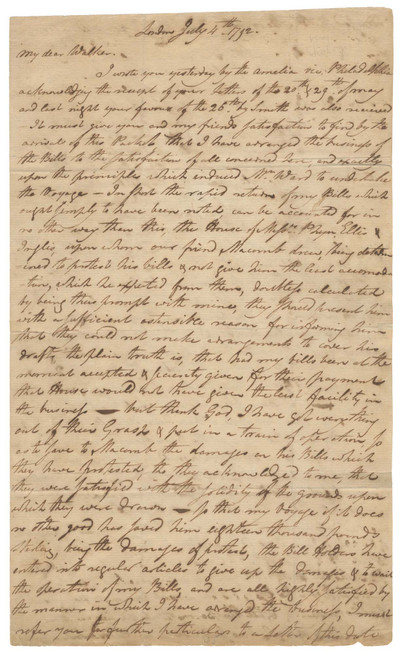 London July 4th 1792.
My dear Walker.
I wrote you yesterday by the Amelia via Philadelphia
acknowledging the receipt of your letters of the 20th & 29th of may
and last night your favour of the 26th by Smith was also received
It must give you and my friends satisfaction to find by the
arrival of this Packet that I have arranged the business of
the Bills to the satisfaction of all concerned here, and exactly
upon the principles which induced Mr. Ward to undertake
the Voyage — In short the rapid return of my Bills which
ought simply to have been noted can be accounted for in
no other way than this, the House of Messrs. Phyn Ellice &
Inglis upon whom our friend Macomb drew, being determ
ined to protest his bills & not give him the least accomoda
tion, which he expected from them, doubtless calculated
by being thus prompt with mine, they should present him
with a sufficient ostensible reason for informing him
that they could not make arrangements to cover his
drafts, the plain truth is, that had my bills been at the
moment accepted & security given for their payment
that House would not have given the least facility in
the business — but thank God, I have got every thing
out of their Grasp & put in a train of operation so
as to save to Macomb the damages on his Bills which
they have protested, tho they acknowledged to me, that
they were satisfied with the solidity of the grounds upon
which they were drawn — so that my Voyage if it does
no other good has saved him eighteen thousand pounds
sterling, being the damages of protest, the Bill Holders have
entered into regular articles to give up the damages & to wait
the operation of my Bills, and are all highly satisfied by
the manner in which I have arranged the business, I must
refer you for further particulars to a letter of this date